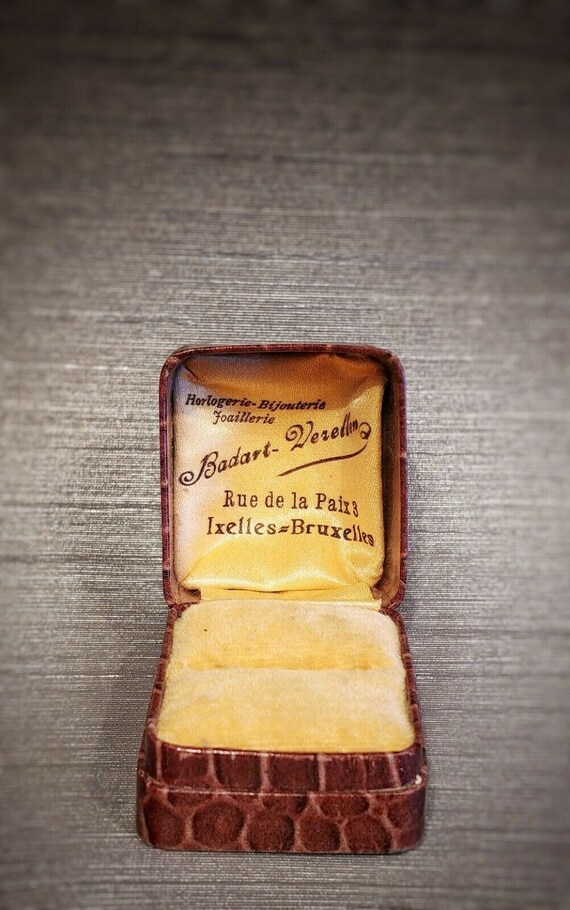 Horlogerie-Bijouterie
Joaillerie
Badart-Verellen
Rue de la Paix 3
Ixelles=Bruxelles